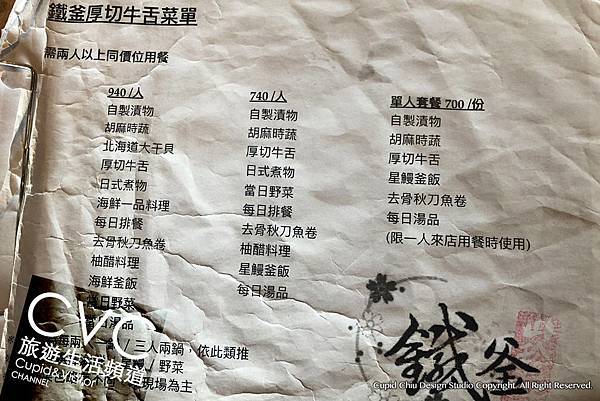 鐵釜厚切牛舌菜單
需兩人以上同價位用餐
940/人
自製漬物
胡麻時蔬
北海道大干貝
厚切牛舌
日式煮物
海鮮一品料理
每日排餐
去骨秋刀魚卷
柚醋料理
海鮮釜飯
當日野菜
湯品
740/人
自製漬物
胡麻時蔬
厚切牛舌
日式煮物
當日野菜
每日排餐
去骨秋刀魚卷
柚醋料理
星鰻釜飯
每日湯品
單人套餐 700/份
自製漬物
胡麻時蔬
厚切牛舌
星鰻釜飯
去骨秋刀魚卷
每日湯品
(限一人來店用餐時使用)
/三人兩鍋，依此類推
/野菜
現場為主
鐵釜
CVC
旅遊生活頻道
Cupid&Victor
CHANNEL
Cupid Chiu Design Studio Copyright. All Right Reserved.